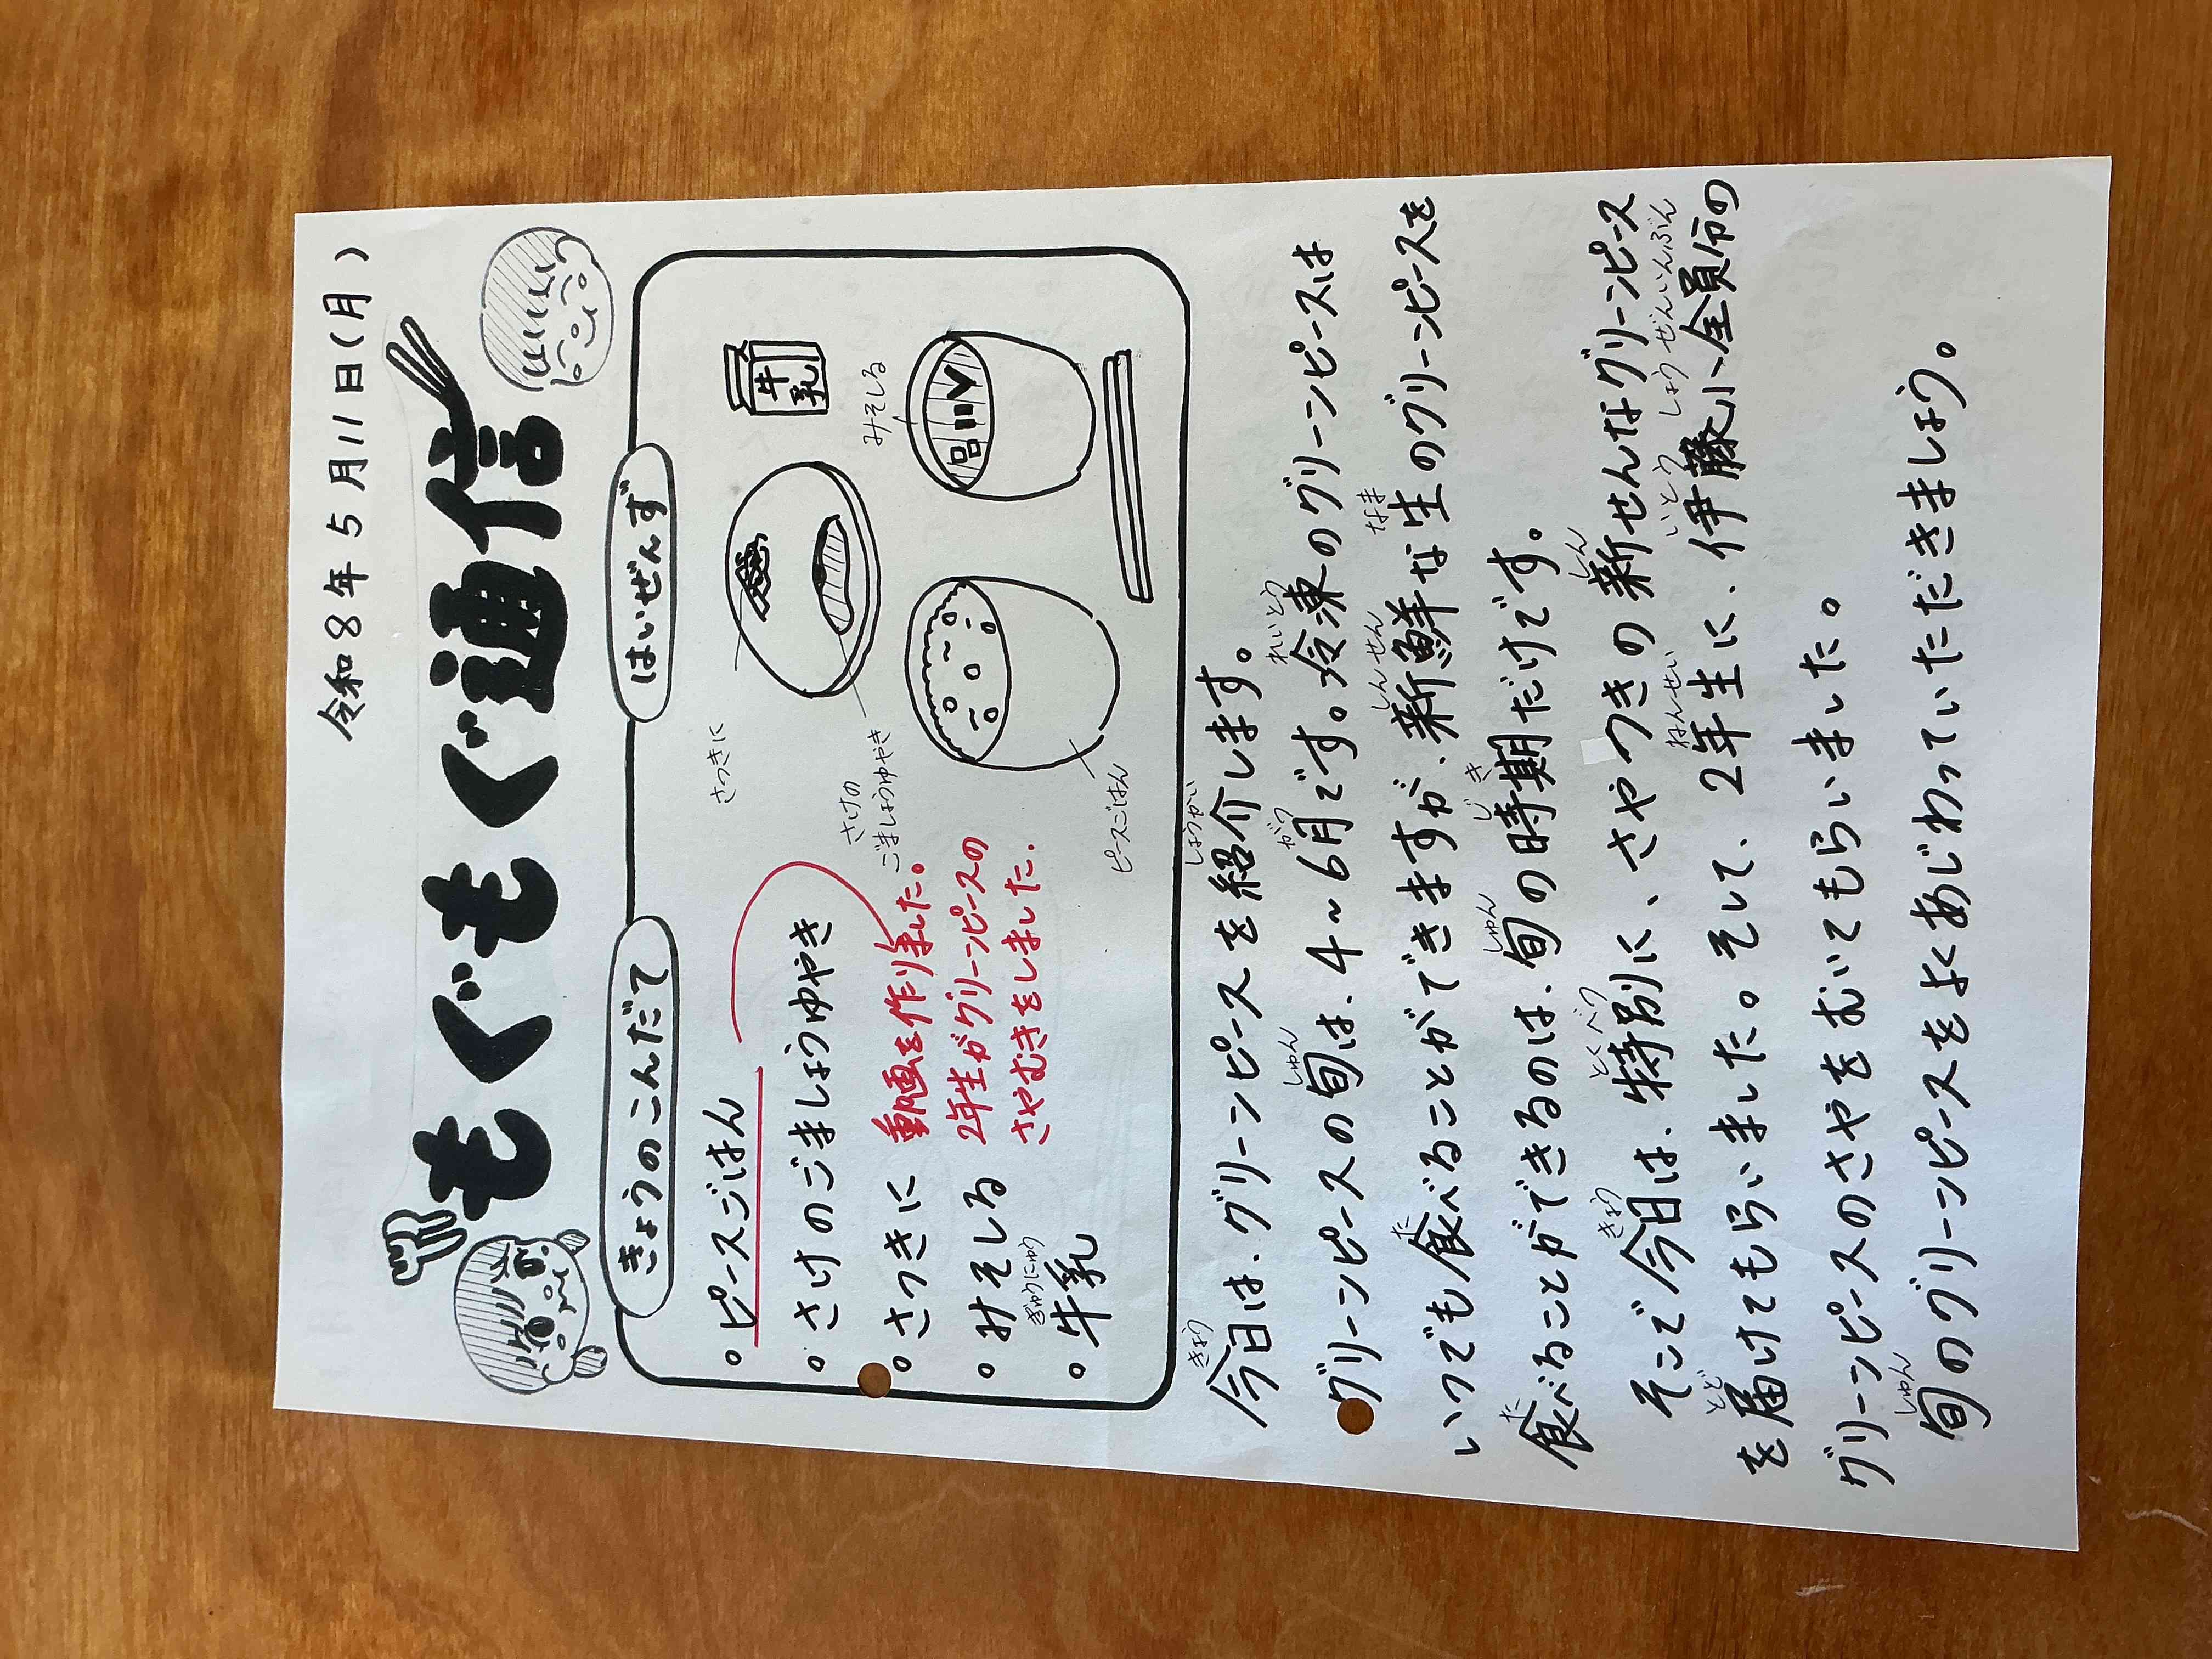 令和8年5月11日(月)
もぐもぐ通信
きょうのこんだて
はいぜんず
ピースごはん
さけのごましょうゆやき
さつきに
みそしる
ぎゅうにゅう
牛乳
動画を作りました。
2年生がグリーンピースの
さやむきをしました.
さつきに
さけの
ごましょうゆやき
ピースごはん
みそしる
牛乳
きょう しょうかい
今日は、グリーンピースを紹介します。
しゅん がつ れいとう
グリーンピースの旬は、4~6月です。冷凍のグリーンピースは
た しんせん なま
いつでも食べることができますが、新鮮な生のグリーンピースを
た しゅん じき
食べることができるのは、旬の時期だけです。
きょう とくべつ しん
そこで今日は、特別に、さやつきの新せんなグリーンピース
とど ねんせい いとう しょう ぜんいんぶん
を届けてもらいました。そして、2年生に、伊藤小全員分の
グリーンピースのさやをむいてもらいました。
しゅん
旬のグリーンピースをよくあじわっていただきましょう。